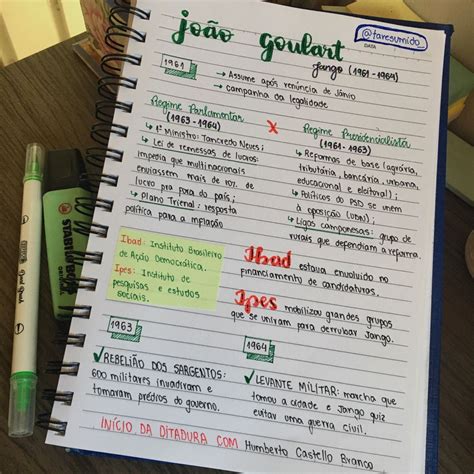 João Goulart
@taresumida
DATA
Jango (1961-1964)
1961
→ Assume após renúncia de Jânio
→ campanha da legalidade
Regime Parlamentar
(1963-1964)
↳ 1º Ministro: Tancredo Neves;
↳ Lei de remessas de lucros:
impedia que multinacionais
enviassem mais de 10% de
lucro pra fora do país;
↳ Plano Trienal: resposta
política para a inflação
X
Regime Presidencialista
(1961-1963)
↳ Reformas de base (agrária,
tributária, bancária, urbana,
educacional e eleitoral);
↳ Políticos do PSD se unem
à oposição (UDN);
↳ Ligas camponesas: grupo de
rurais que defendiam a reforma.
Ibad: Instituto Brasileiro
de Ação Democrática.
Ipes: Instituto de
pesquisas e estudos
sociais.
Ibad estava envolvido no
financiamento de candidaturas.
Ipes mobilizou grandes grupos
que se uniram para derrubar Jango.
1963
✓ REBELIÃO DOS SARGENTOS:
600 militares invadiram e
tomaram prédios do governo.
1964
✓ LEVANTE MILITAR: marcha que
tomou a cidade e Jango quiz
evitar uma guerra civil.
INÍCIO DA DITADURA COM Humberto Castello Branco
STABILO BOSS